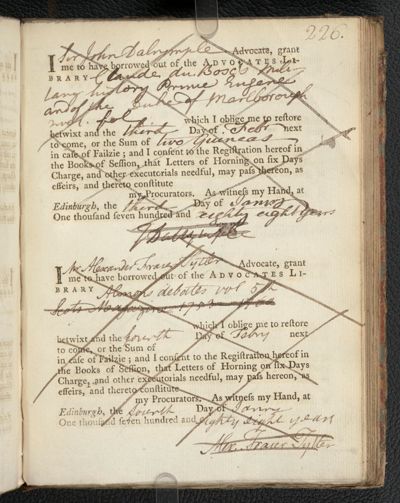 226.
I Sir John Dalrymple Advocate, grant
me to have borrowed out of the ADVOCATES LI-
BRARY Claude du Bosc's Mili-
tary history Prince Eugene
and of the Duke of Marlborough
fol which I oblige me to restore
betwixt and the third Day of Febr next
to come, or the Sum of two Guineas
in case of Failzie; and I consent to the Registration hereof in
the Books of Session, that Letters of Horning on six Days
Charge, and other executorials needful, may pass thereon, as
effeirs, and thereto constitute
my Procurators. As witness my Hand, at
Edinburgh, the third Day of Janry
One thousand seven hundred and eighty eight years
J Dalrymple
I Mr Alexander Fraser Tytler Advocate, grant
me to have borrowed out of the ADVOCATES LI-
BRARY Almons debates vol 5th
Scots Magazine
which I oblige me to restore
betwixt and the fourth Day of Febry next
to come, or the Sum of
in case of Failzie; and I consent to the Registration hereof in
the Books of Session, that Letters of Horning on six Days
Charge, and other executorials needful, may pass hereon, as
effeirs, and thereto constitute
my Procurators. As witness my Hand, at
Edinburgh, the fourth Day of Janry
One thousand seven hundred and eighty eight years
Alex. Fraser Tytler